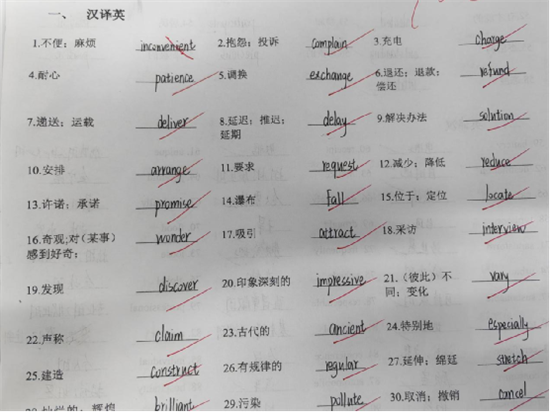 一、 汉译英
1.不便；麻烦 inconvenient 2.抱怨；投诉 complain 3.充电 charge
4.耐心 patience 5.调换 exchange 6.退还；退款；偿还 refund
7.递送；运载 deliver 8.延迟；推迟；延期 delay 9.解决办法 solution
10.安排 arrange 11.要求 request 12.减少；降低 reduce
13.许诺；承诺 promise 14.瀑布 fall 15.位于；定位 locate
16.奇观;对(某事)感到好奇； wonder 17.吸引 attract 18.采访 interview
19.发现 discover 20.印象深刻的 impressive 21.（彼此）不同；变化 vary
22.声称 claim 23.古代的 ancient 24.特别地 especially
25.建造 construct 26.有规律的 regular 27.延伸；绵延 stretch
28.灿烂的；辉煌 brilliant 29.污染 pollute 30.取消；撤销 cancel